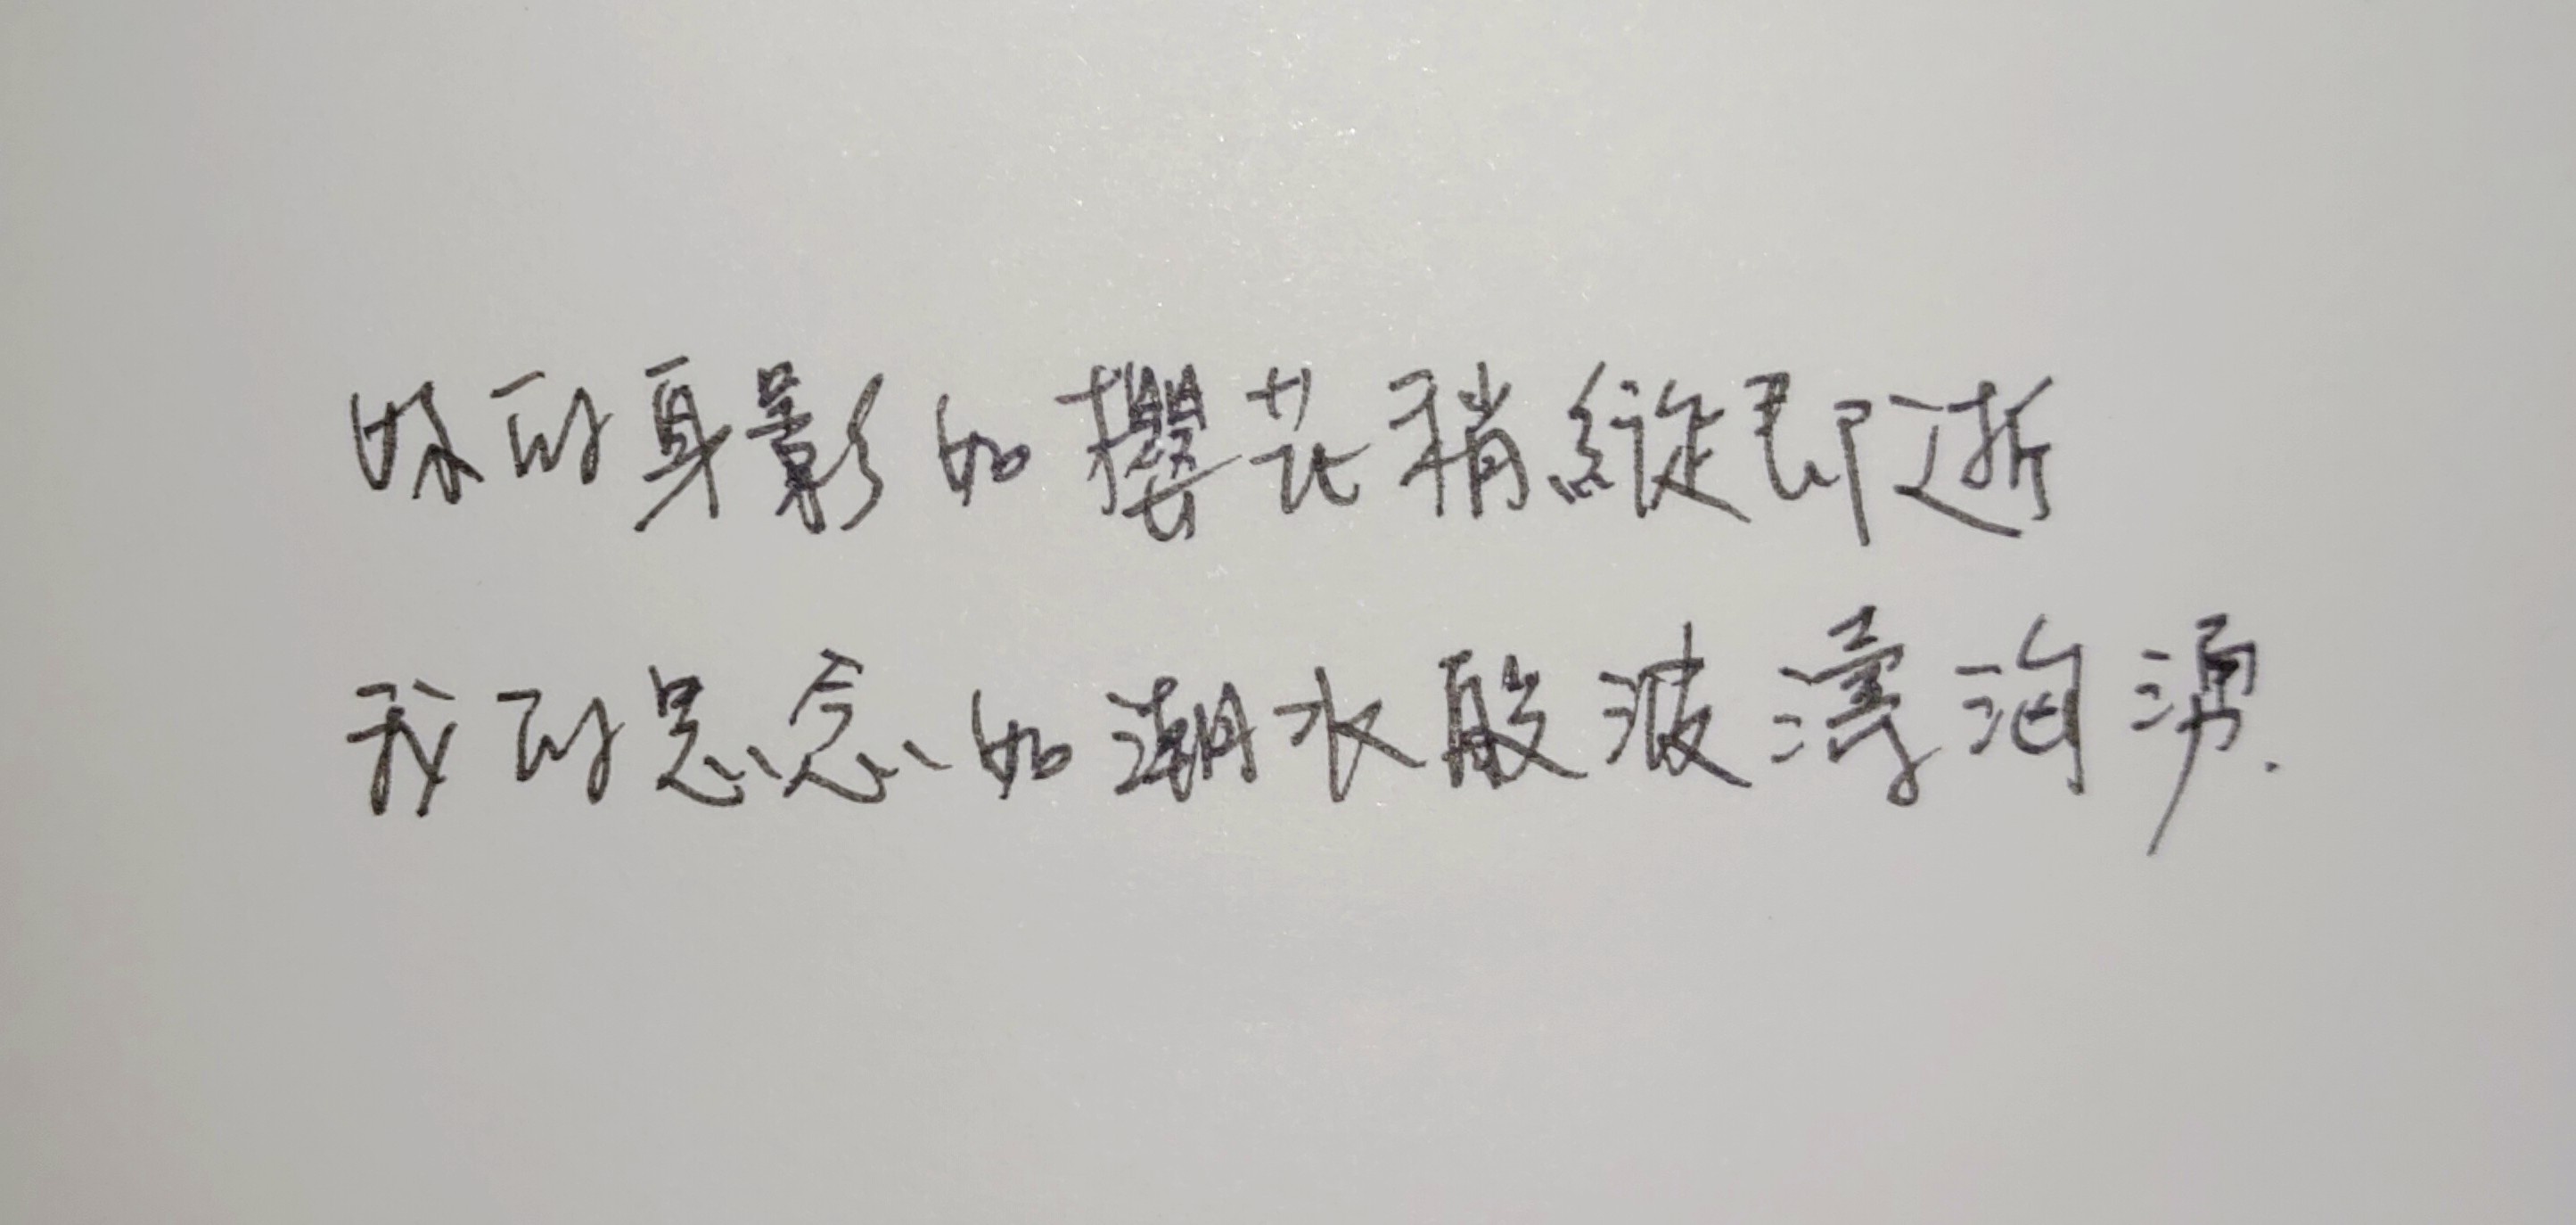 妳的身影如櫻花稍縱即逝
我的思念如潮水般波濤洶湧.